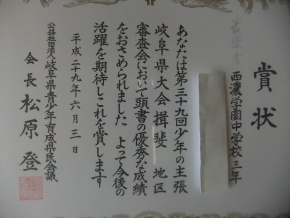 賞状
西濃学園中学校三年
あなたは第三十九回少年の主張
岐阜県大会揖斐地区
審査会において頭書の優秀な成績
をおさめられました よって今後の
活躍を期待しこれを賞します
平成二十九年六月三日
公益社団法人岐阜県青少年育成県民会議
会長 松原 登